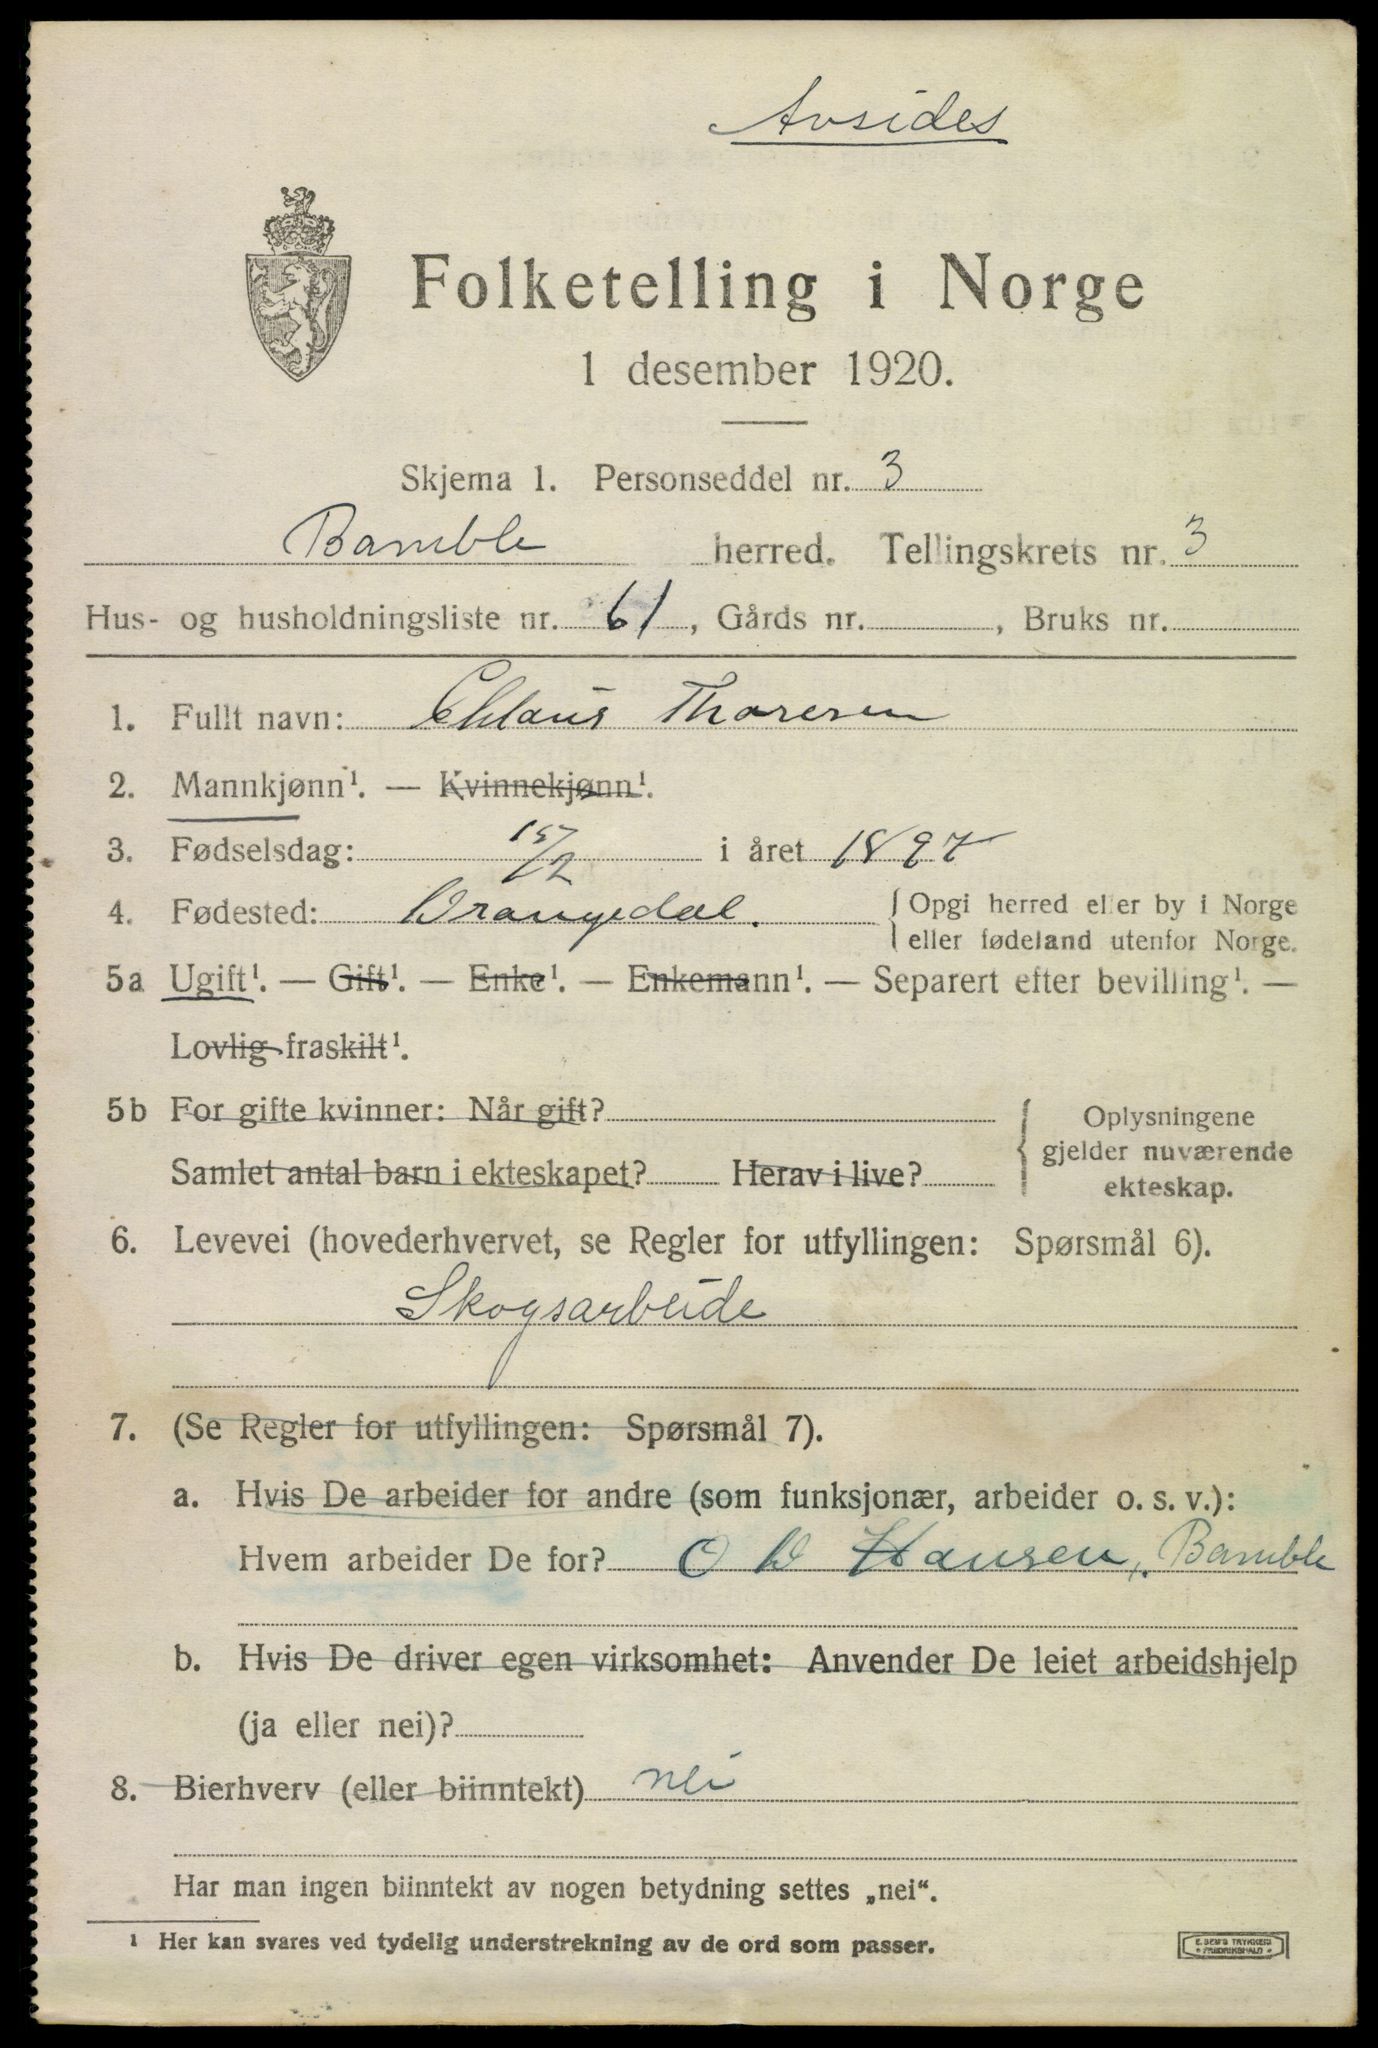 Avsides
Folketelling i Norge
1 desember 1920.
Skjema 1. Personseddel nr. 3
Bamble herred. Tellingskrets nr. 3
Hus- og husholdningsliste nr. 61, Gårds nr. , Bruks nr.
1. Fullt navn: Thoresen
2. Mannkjønn¹. — Kvinnekjønn¹.
3. Fødselsdag: 15/2 i året 1897
4. Fødested: Drangedal. { Opgi herred eller by i Norge
eller fødeland utenfor Norge.
5a Ugift¹. — Gift¹. — Enke¹. — Enkemann¹. — Separert efter bevilling¹. —
Lovlig fraskilt¹.
5b For gifte kvinner: Når gift? { Oplysningene
gjelder nuværende
Samlet antal barn i ekteskapet? Herav i live?
ekteskap.
6. Levevei (hovederhvervet, se Regler for utfyllingen: Spørsmål 6).
Skogsarbeide
7. (Se Regler for utfyllingen: Spørsmål 7).
a. Hvis De arbeider for andre (som funksjonær, arbeider o. s. v.):
Hvem arbeider De for? O Hansen, Bamble
b. Hvis De driver egen virksomhet: Anvender De leiet arbeidshjelp
(ja eller nei)?
8. Bierhverv (eller biinntekt) nei
Har man ingen biinntekt av nogen betydning settes „nei“.
¹ Her kan svares ved tydelig understrekning av de ord som passer.
E. SEM'S TRYKKERI
* FREDRIKSHALD *